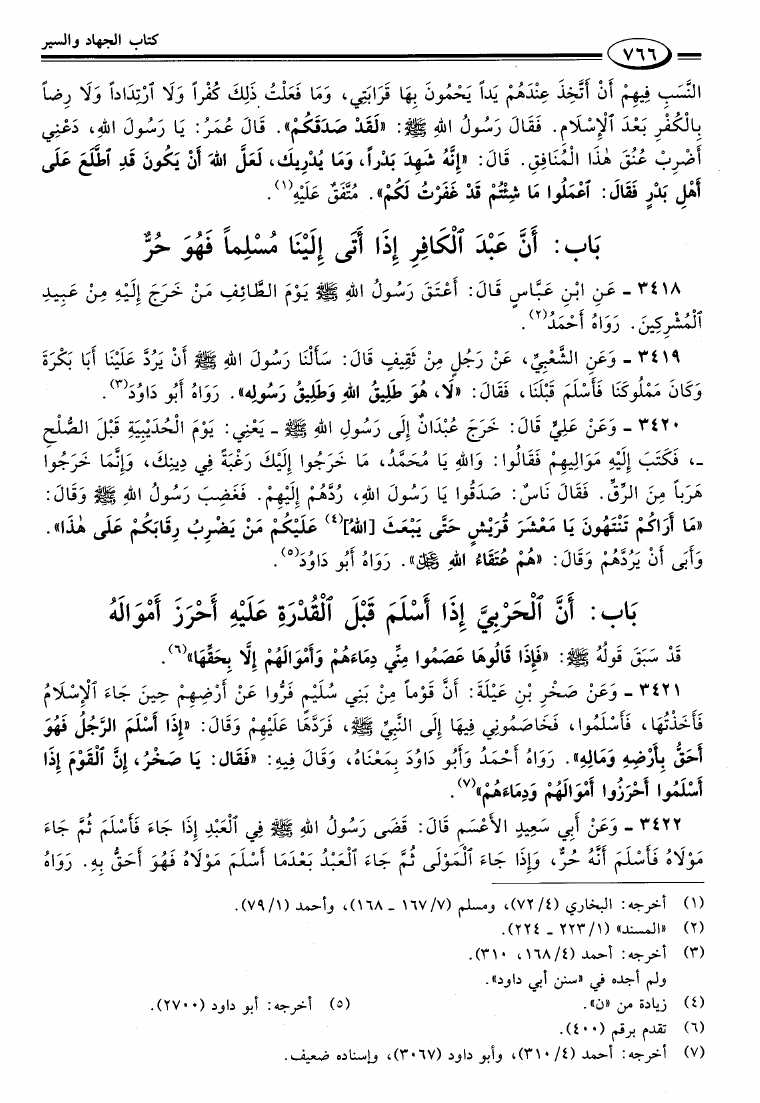 كتاب الجهاد والسير
٧٦٦
النَّسَبِ فِيهِمْ أَنْ أَتَّخِذَ عِنْدَهُمْ يَداً يَحْمُونَ بِهَا قَرَابَتِي، وَمَا فَعَلْتُ ذَلِكَ كُفْراً وَلَا ٱرْتِدَاداً وَلَا رِضاً
بِالْكُفْرِ بَعْدَ ٱلْإِسْلَامِ. فَقَالَ رَسُولُ اللهِ ﷺ: «لَقَدْ صَدَقَكُمْ». قَالَ عُمَرُ: يَا رَسُولَ اللهِ، دَعْنِي
أَضْرِبْ عُنُقَ هٰذَا الْمُنَافِقِ. قَالَ: «إِنَّهُ شَهِدَ بَدْراً، وَمَا يُدْرِيكَ، لَعَلَّ اللهَ أَنْ يَكُونَ قَدِ ٱطَّلَعَ عَلَى
أَهْلِ بَدْرٍ فَقَالَ: ٱعْمَلُوا مَا شِئْتُمْ قَدْ غَفَرْتُ لَكُمْ». مُتَّفَقٌ عَلَيْهِ(١).
بَاب: أَنَّ عَبْدَ ٱلْكَافِرِ إِذَا أَتَى إِلَيْنَا مُسْلِماً فَهُوَ حُرٌّ
٣٤١٨ ـ عَنِ ابْنِ عَبَّاسٍ قَالَ: أَعْتَقَ رَسُولُ اللهِ ﷺ يَوْمَ الطَّائِفِ مَنْ خَرَجَ إِلَيْهِ مِنْ عَبِيدِ
ٱلْمُشْرِكِينَ. رَوَاهُ أَحْمَدُ(٢).
٣٤١٩ ـ وَعَنِ الشَّعْبِيِّ، عَنْ رَجُلٍ مِنْ ثَقِيفٍ قَالَ: سَأَلْنَا رَسُولَ اللهِ ﷺ أَنْ يَرُدَّ عَلَيْنَا أَبَا بَكْرَةَ
وَكَانَ مَمْلُوكَنَا فَأَسْلَمَ قَبْلَنَا، فَقَالَ: «لَا، هُوَ طَلِيقُ اللهِ وَطَلِيقُ رَسُولِه». رَوَاهُ أَبُو دَاوُدَ(٣).
٣٤٢٠ ـ وَعَنْ عَلِيٍّ قَالَ: خَرَجَ عُبْدَانٌ إِلَى رَسُولِ اللهِ ﷺ ـ يَعْنِي: يَوْمَ الْحُدَيْبِيَةِ قَبْلَ الصُّلْحِ
ـ، فَكَتَبَ إِلَيْهِ مَوَالِيهِمْ فَقَالُوا: وَاللهِ يَا مُحَمَّدُ، مَا خَرَجُوا إِلَيْكَ رَغْبَةً فِي دِينِكَ، وَإِنَّمَا خَرَجُوا
هَرَباً مِنَ الرِّقِّ. فَقَالَ نَاسٌ: صَدَقُوا يَا رَسُولَ اللهِ، رُدَّهُمْ إِلَيْهِمْ. فَغَضِبَ رَسُولُ اللهِ ﷺ وَقَالَ:
«مَا أَرَاكُمْ تَنْتَهُونَ يَا مَعْشَرَ قُرَيْشٍ حَتَّى يَبْعَثَ [اللهُ](٤) عَلَيْكُمْ مَنْ يَضْرِبُ رِقَابَكُمْ عَلَى هٰذَا».
وَأَبَى أَنْ يَرُدَّهُمْ وَقَالَ: «هُمْ عُتَقَاءُ اللهِ ﷻ». رَوَاهُ أَبُو دَاوُدَ(٥).
بَاب: أَنَّ ٱلْحَرْبِيَّ إِذَا أَسْلَمَ قَبْلَ ٱلْقُدْرَةِ عَلَيْهِ أَحْرَزَ أَمْوَالَهُ
قَدْ سَبَقَ قَوْلُهُ ﷺ: «فَإِذَا قَالُوهَا عَصَمُوا مِنِّي دِمَاءَهُمْ وَأَمْوَالَهُمْ إِلَّا بِحَقِّهَا»(٦).
٣٤٢١ ـ وَعَنْ صَخْرِ بْنِ عَيْلَةَ: أَنَّ قَوْماً مِنْ بَنِي سُلَيْمٍ فَرُّوا عَنْ أَرْضِهِمْ حِينَ جَاءَ ٱلْإِسْلَامُ
فَأَخَذْتُهَا، فَأَسْلَمُوا، فَخَاصَمُونِي فِيهَا إِلَى النَّبِيِّ ﷺ، فَرَدَّهَا عَلَيْهِمْ وَقَالَ: «إِذَا أَسْلَمَ الرَّجُلُ فَهُوَ
أَحَقُّ بِأَرْضِهِ وَمَالِهِ». رَوَاهُ أَحْمَدُ وَأَبُو دَاوُدَ بِمَعْنَاهُ، وَقَالَ فِيهِ: «فَقَال: يَا صَخْرُ، إِنَّ ٱلْقَوْمَ إِذَا
أَسْلَمُوا أَحْرَزُوا أَمْوَالَهُمْ وَدِمَاءَهُمْ»(٧).
٣٤٢٢ ـ وَعَنْ أَبِي سَعِيدٍ الأَعْسَمِ قَالَ: قَضَى رَسُولُ اللهِ ﷺ فِي ٱلْعَبْدِ إِذَا جَاءَ فَأَسْلَمَ ثُمَّ جَاءَ
مَوْلَاهُ فَأَسْلَمَ أَنَّهُ حُرٌّ، وَإِذَا جَاءَ ٱلْمَوْلَى ثُمَّ جَاءَ ٱلْعَبْدُ بَعْدَمَا أَسْلَمَ مَوْلَاهُ فَهُوَ أَحَقُّ بِهِ. رَوَاهُ
(١) أخرجه: البخاري (٧٢/٤)، ومسلم (١٦٧/٧ ـ ١٦٨)، وأحمد (٧٩/١).
(٢) «المسند» (٢٢٣/١ ـ ٢٢٤).
(٣) أخرجه: أحمد (١٦٨/٤، ٣١٠).
ولم أجده في «سنن أبي داود».
(٤) زيادة من «ن». (٥) أخرجه: أبو داود (٢٧٠٠).
(٦) تقدم برقم (٤٠٠).
(٧) أخرجه: أحمد (٣١٠/٤)، وأبو داود (٣٠٦٧)، وإسناده ضعيف.